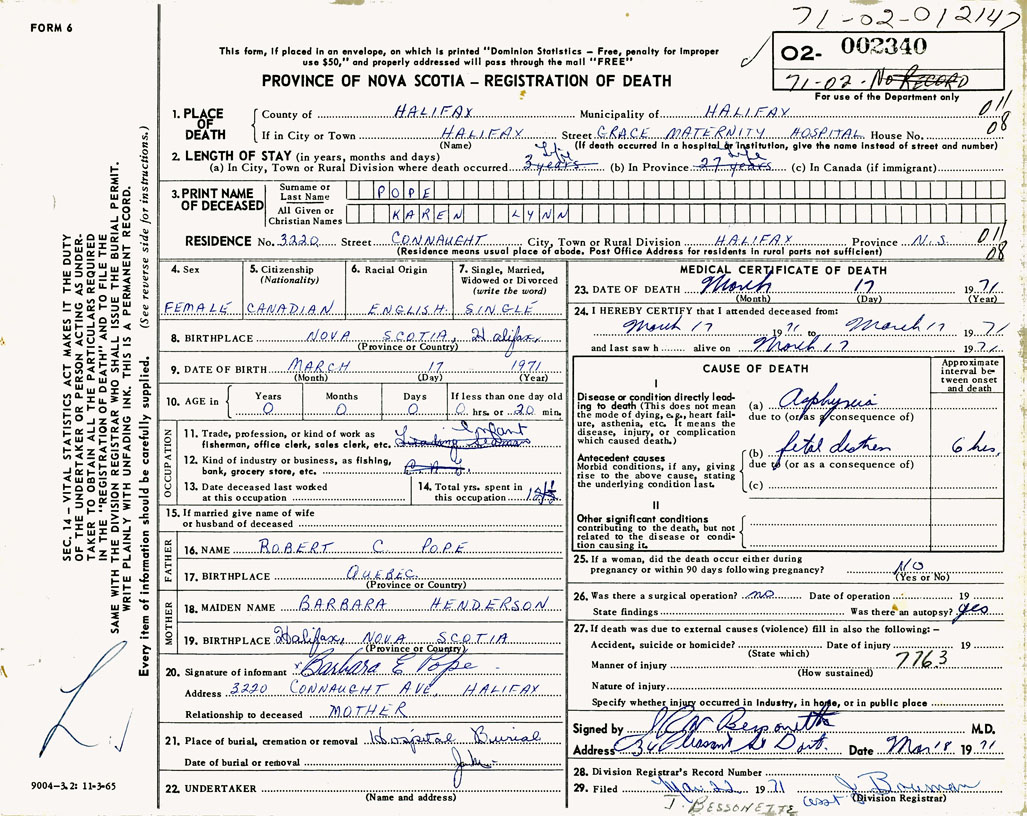 FORM 6
71-02-012147
02- 002340
71-02- No RECORD
For use of the Department only
This form, if placed in an envelope, on which is printed "Dominion Statistics – Free, penalty for improper
use $50," and properly addressed will pass through the mail "FREE"
PROVINCE OF NOVA SCOTIA – REGISTRATION OF DEATH
1. PLACE OF DEATH
County of HALIFAX Municipality of HALIFAX 011
If in City or Town HALIFAX Street GRACE MATERNITY HOSPITAL House No. 08
(Name) (If death occurred in a hospital or institution, give the name instead of street and number)
2. LENGTH OF STAY (in years, months and days)
(a) In City, Town or Rural Division where death occurred 3 years Life (b) In Province 27 years Life (c) In Canada (if immigrant)
3. PRINT NAME OF DECEASED
Surname or Last Name POPE
All Given or Christian Names KAREN LYNN
RESIDENCE No. 3220 Street CONNAUGHT City, Town or Rural Division HALIFAX Province N.S. 011
(Residence means usual place of abode. Post Office Address for residents in rural parts not sufficient) 08
4. Sex FEMALE
5. Citizenship (Nationality) CANADIAN
6. Racial Origin ENGLISH
7. Single, Married, Widowed or Divorced (write the word) SINGLE
8. BIRTHPLACE NOVA SCOTIA, Halifax,
(Province or Country)
9. DATE OF BIRTH MARCH 17 1971
(Month) (Day) (Year)
10. AGE in
Years Months Days If less than one day old
0 0 0 0 hrs. or 20 min.
OCCUPATION
11. Trade, profession, or kind of work as
fisherman, office clerk, sales clerk, etc. Infant
12. Kind of industry or business, as fishing,
bank, grocery store, etc.
13. Date deceased last worked
at this occupation
14. Total yrs. spent in
this occupation
15. If married give name of wife
or husband of deceased
FATHER
16. NAME ROBERT C. POPE
17. BIRTHPLACE QUEBEC
(Province or Country)
MOTHER
18. MAIDEN NAME BARBARA HENDERSON
19. BIRTHPLACE Halifax, NOVA SCOTIA
(Province or Country)
20. Signature of informant x Barbara E Pope
Address 3220 CONNAUGHT AVE, HALIFAX
Relationship to deceased MOTHER
21. Place of burial, cremation or removal Hospital Burial
Date of burial or removal
22. UNDERTAKER
(Name and address)
MEDICAL CERTIFICATE OF DEATH
23. DATE OF DEATH March 17 1971
(Month) (Day) (Year)
24. I HEREBY CERTIFY that I attended deceased from:
March 17 1971 to March 17 1971
and last saw h alive on March 17 1971
CAUSE OF DEATH
Approximate interval between onset and death
I
Disease or condition directly leading to death (This does not mean the mode of dying, e.g., heart failure, asthenia, etc. It means the disease, injury, or complication which caused death.)
(a) Asphyxia
due to (or as a consequence of)
Antecedent causes
Morbid conditions, if any, giving rise to the above cause, stating the underlying condition last.
(b) fetal distress 6 hrs,
due to (or as a consequence of)
(c)
II
Other significant conditions
contributing to the death, but not
related to the disease or condition causing it.
25. If a woman, did the death occur either during
pregnancy or within 90 days following pregnancy? NO
(Yes or No)
26. Was there a surgical operation? no Date of operation 19
State findings Was there an autopsy? yes
27. If death was due to external causes (violence) fill in also the following: –
Accident, suicide or homicide? Date of injury 19
(State which) 7763
Manner of injury
(How sustained)
Nature of injury
Specify whether injury occurred in industry, in home, or in public place
Signed by Bessonette M.D.
Address 36 Pleasant St Dart. Date Mar 18 1971
28. Division Registrar's Record Number
29. Filed Mar. 22 1971 J Bowman
(Division Registrar)
J. BESSONETTE
SEC. 14 – VITAL STATISTICS ACT MAKES IT THE DUTY
OF THE UNDERTAKER OR PERSON ACTING AS UNDERTAKER
TO OBTAIN ALL THE PARTICULARS REQUIRED
IN THE "REGISTRATION OF DEATH" AND TO FILE THE
SAME WITH THE DIVISION REGISTRAR WHO SHALL ISSUE THE BURIAL PERMIT.
WRITE PLAINLY WITH UNFADING INK. THIS IS A PERMANENT RECORD.
Every item of information should be carefully supplied. (See reverse side for instructions.)
9004-3.2: 11-3-65